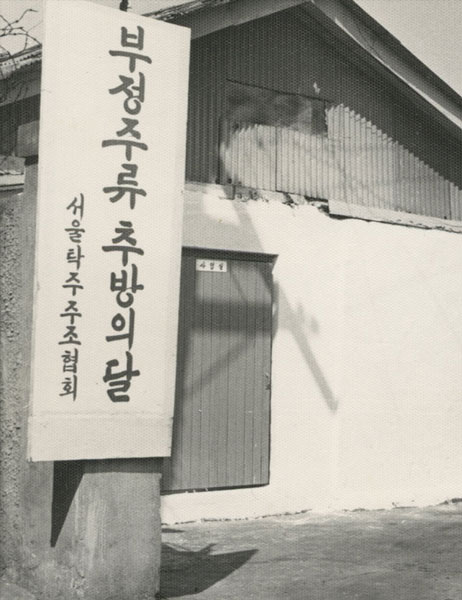 부정주류 추방의달
서울탁주주조협회